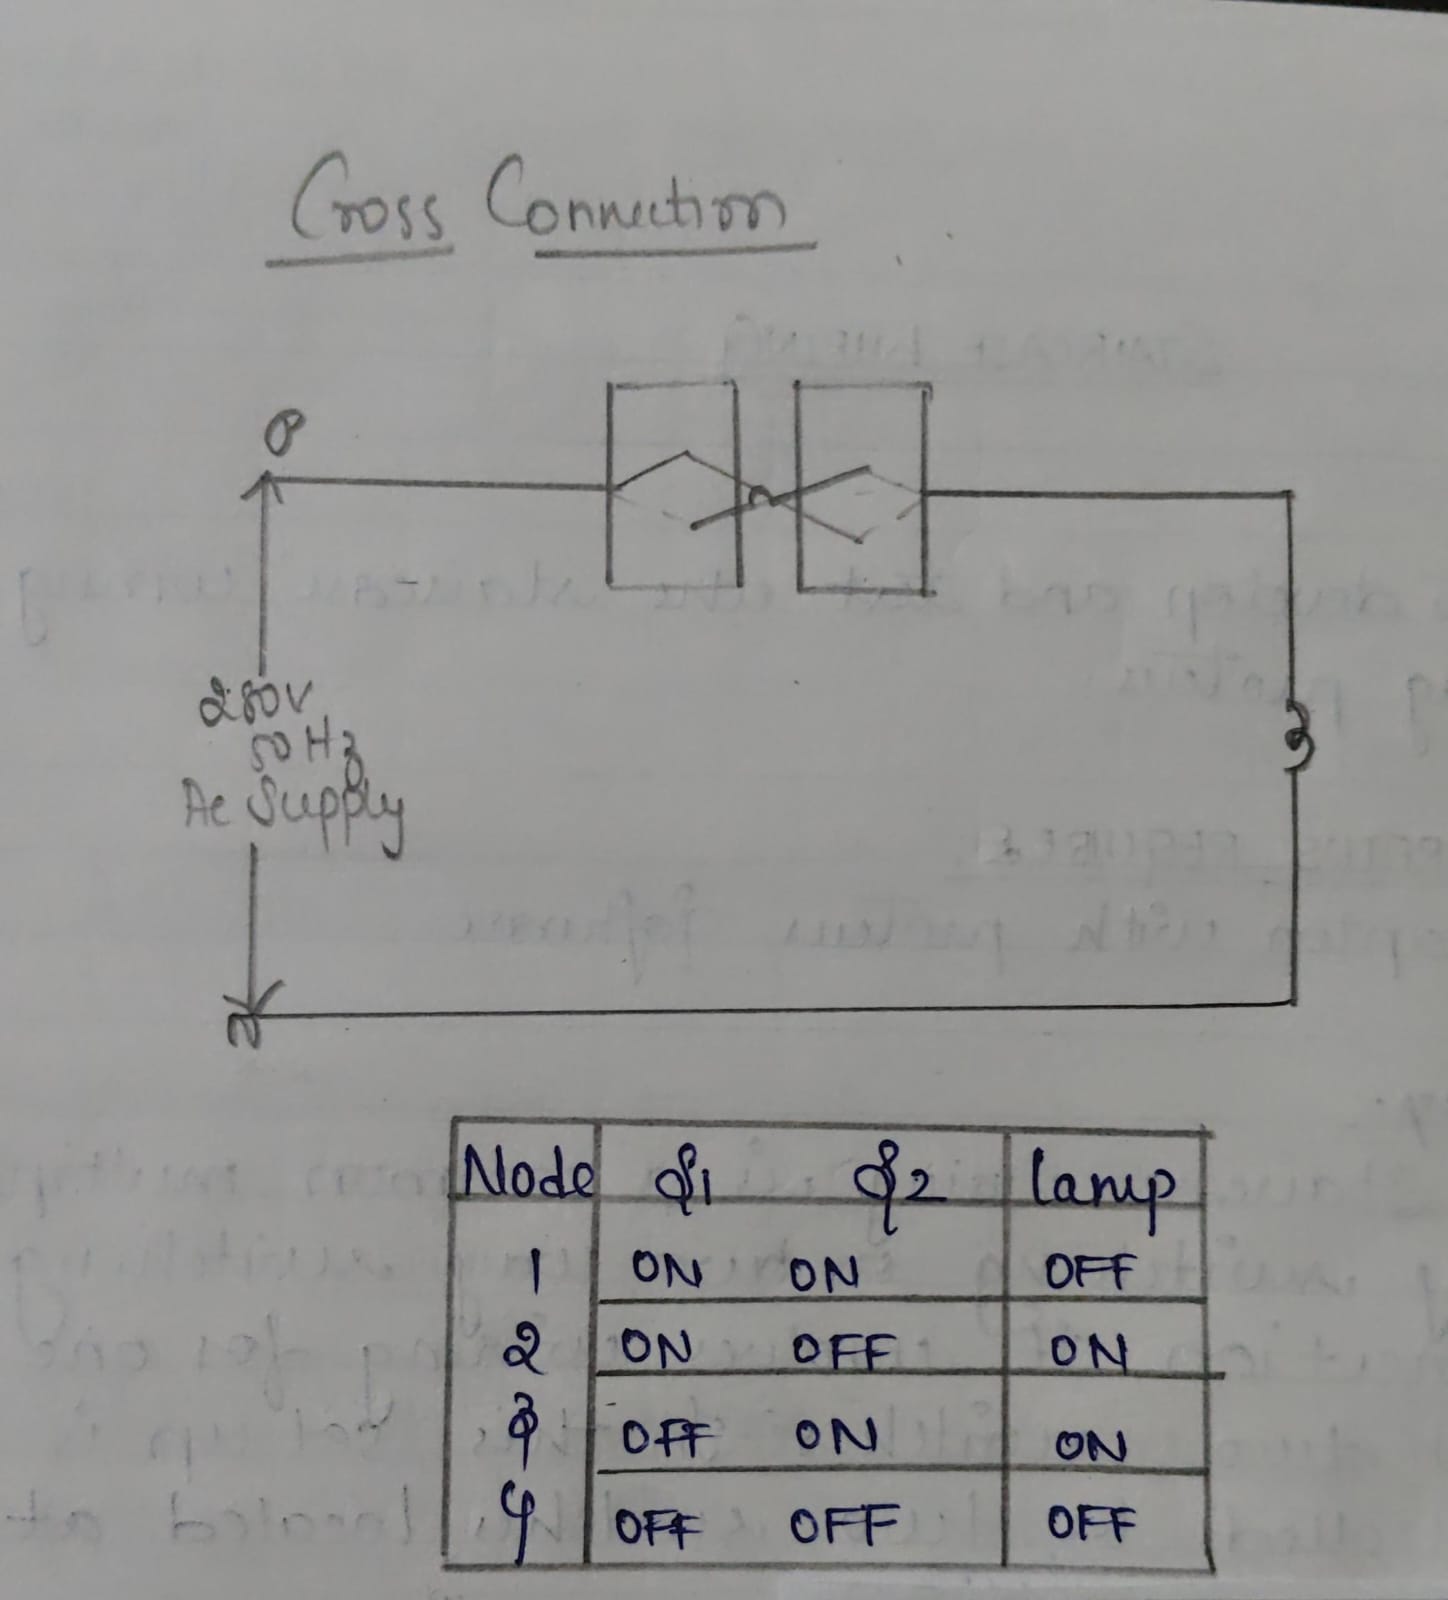 Cross Connection
P
230V
50 Hz
Ac Supply
N
Node S1 S2 lamp
1 ON ON OFF
2 ON OFF ON
3 OFF ON ON
4 OFF OFF OFF